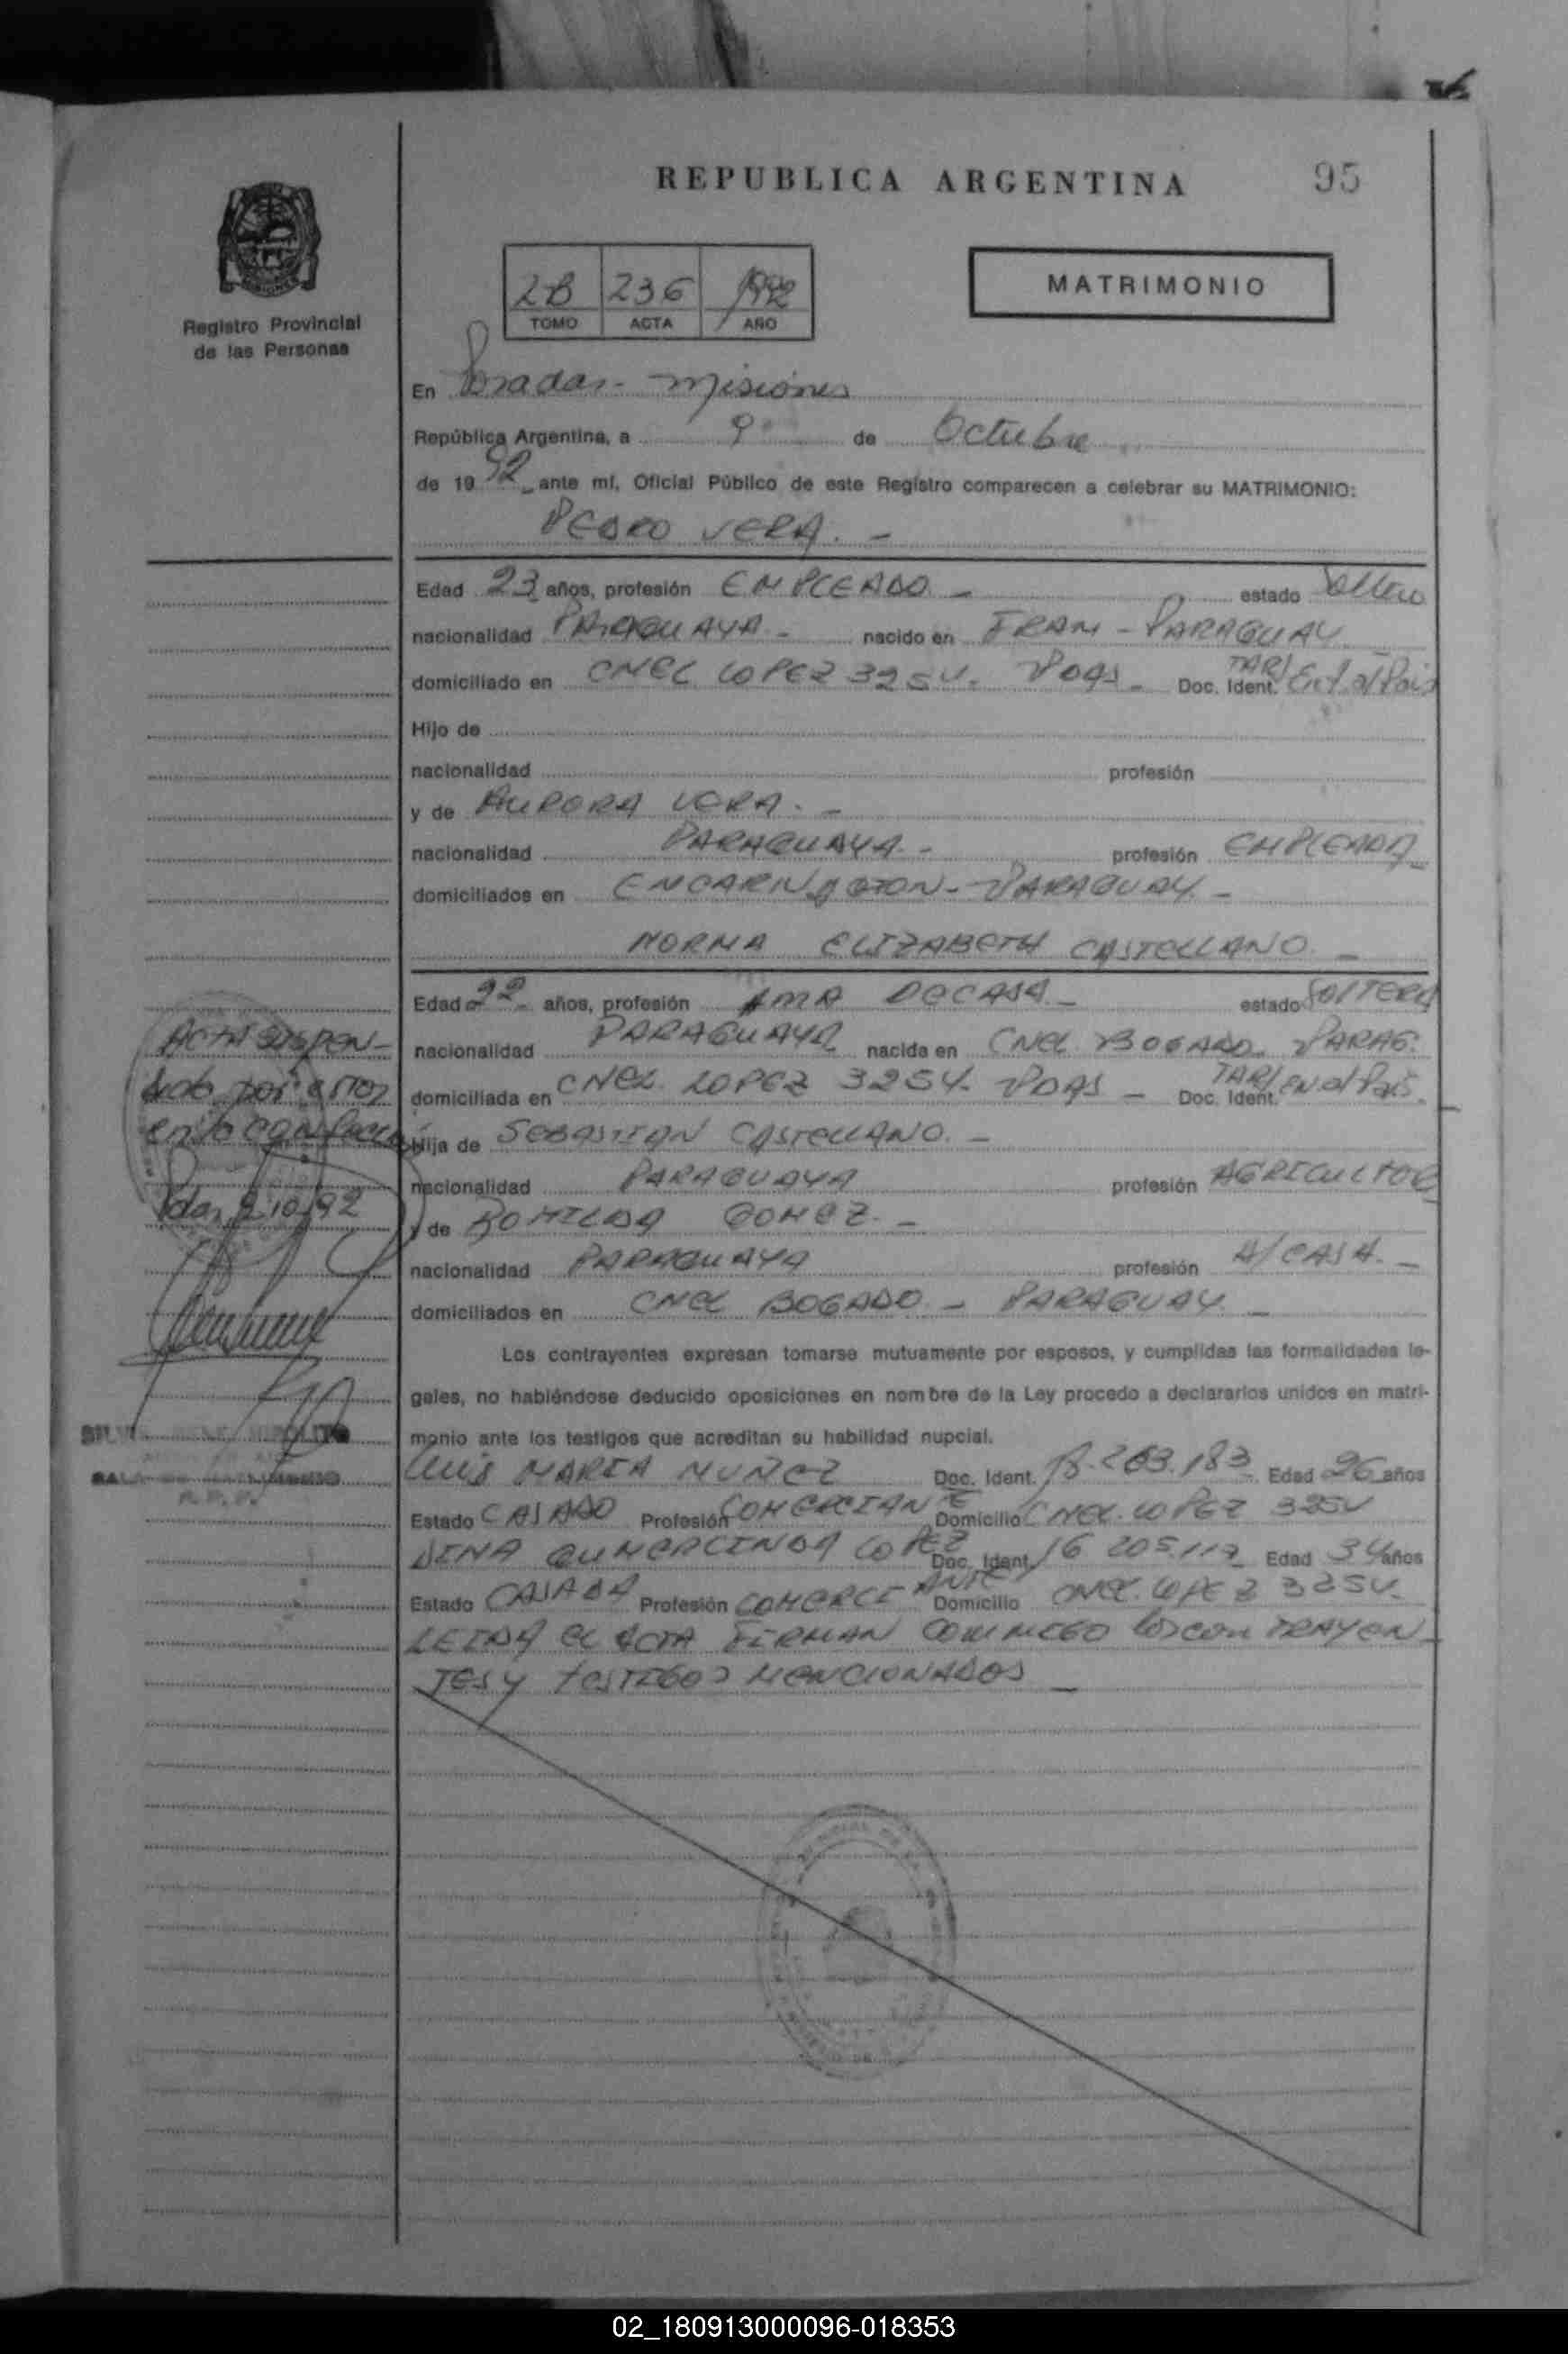 REPUBLICA ARGENTINA
95
Registro Provincial
de las Personas
2B 236 1992
TOMO ACTA AÑO
MATRIMONIO
En Posadas - Misiones
República Argentina, a 9 de Octubre
de 19 92 ante mí, Oficial Público de este Registro comparecen a celebrar su MATRIMONIO:
PEDRO VERA. -
Edad 23 años, profesión EMPLEADO - estado Soltero
nacionalidad PARAGUAYA - nacido en FRAM - PARAGUAY
domiciliado en CNEL LOPEZ 3254. Pdas - Doc. Ident. TAR/ Ent. al Pais
Hijo de
nacionalidad profesión
y de AURORA VERA. -
nacionalidad PARAGUAYA - profesión EMPLEADA
domiciliados en ENCARNACION - PARAGUAY. -
NORMA ELIZABETH CASTELLANO -
Edad 22 años, profesión AMA DE CASA - estado SOLTERA
nacionalidad PARAGUAYA nacida en CNEL BOGADO. PARAG.
domiciliada en CNEL. LOPEZ 3254. PDAS - Doc. Ident. TAR/ EN al Pais.
Hija de SEBASTIAN CASTELLANO. -
nacionalidad PARAGUAYA profesión AGRICULTOR
y de ROMILDA GOMEZ. -
nacionalidad PARAGUAYA profesión A/CASA. -
domiciliados en CNEL BOGADO - PARAGUAY -
ACTA SUSPEN-
dida por error
en la confección
Pdas, 9.10.92
Los contrayentes expresan tomarse mutuamente por esposos, y cumplidas las formalidades le-
gales, no habiéndose deducido oposiciones en nombre de la Ley procedo a declararlos unidos en matri-
monio ante los testigos que acreditan su habilidad nupcial.
LUIS MARIA NUÑEZ Doc. Ident. 18.263.183 Edad 26 años
Estado CASADO Profesión COMERCIANTE Domicilio CNEL. LOPEZ 3254
LOPEZ Doc. Ident. 16 205.117 Edad 34 años
Estado CASADA Profesión COMERCIANTE Domicilio CNEL. LOPEZ 3254.
LEIDA EL ACTA FIRMAN CONMIGO los con TRAYEN-
TES y TESTIGOS MENCIONADOS -
02_180913000096-018353